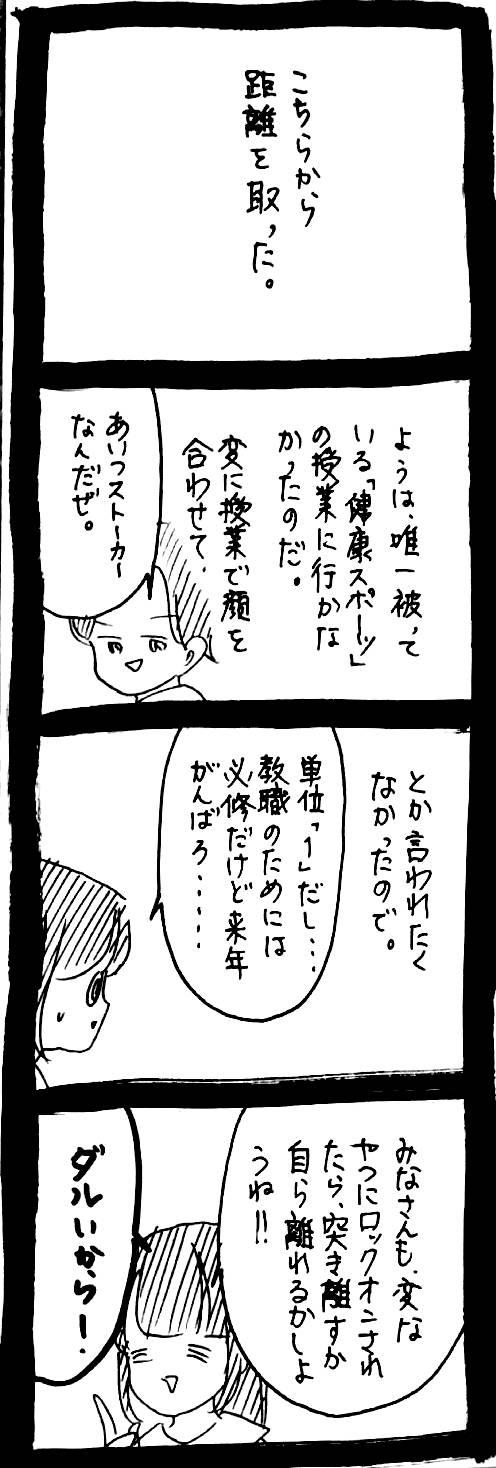 こちらから
距離を取った。
ようは、唯一被って
いる「健康スポーツ」
の授業に行かな
かったのだ。
変に授業で顔を
合わせて、
あいつストーカー
なんだぜ。
とか言われたく
なかったので。
単位「1」だし…
教職のためには
必修だけど来年
がんばろ……
みなさんも、変な
やつにロックオンされ
たら、突き離すか
自ら離れるかしよ
うね!!
ダルいから!